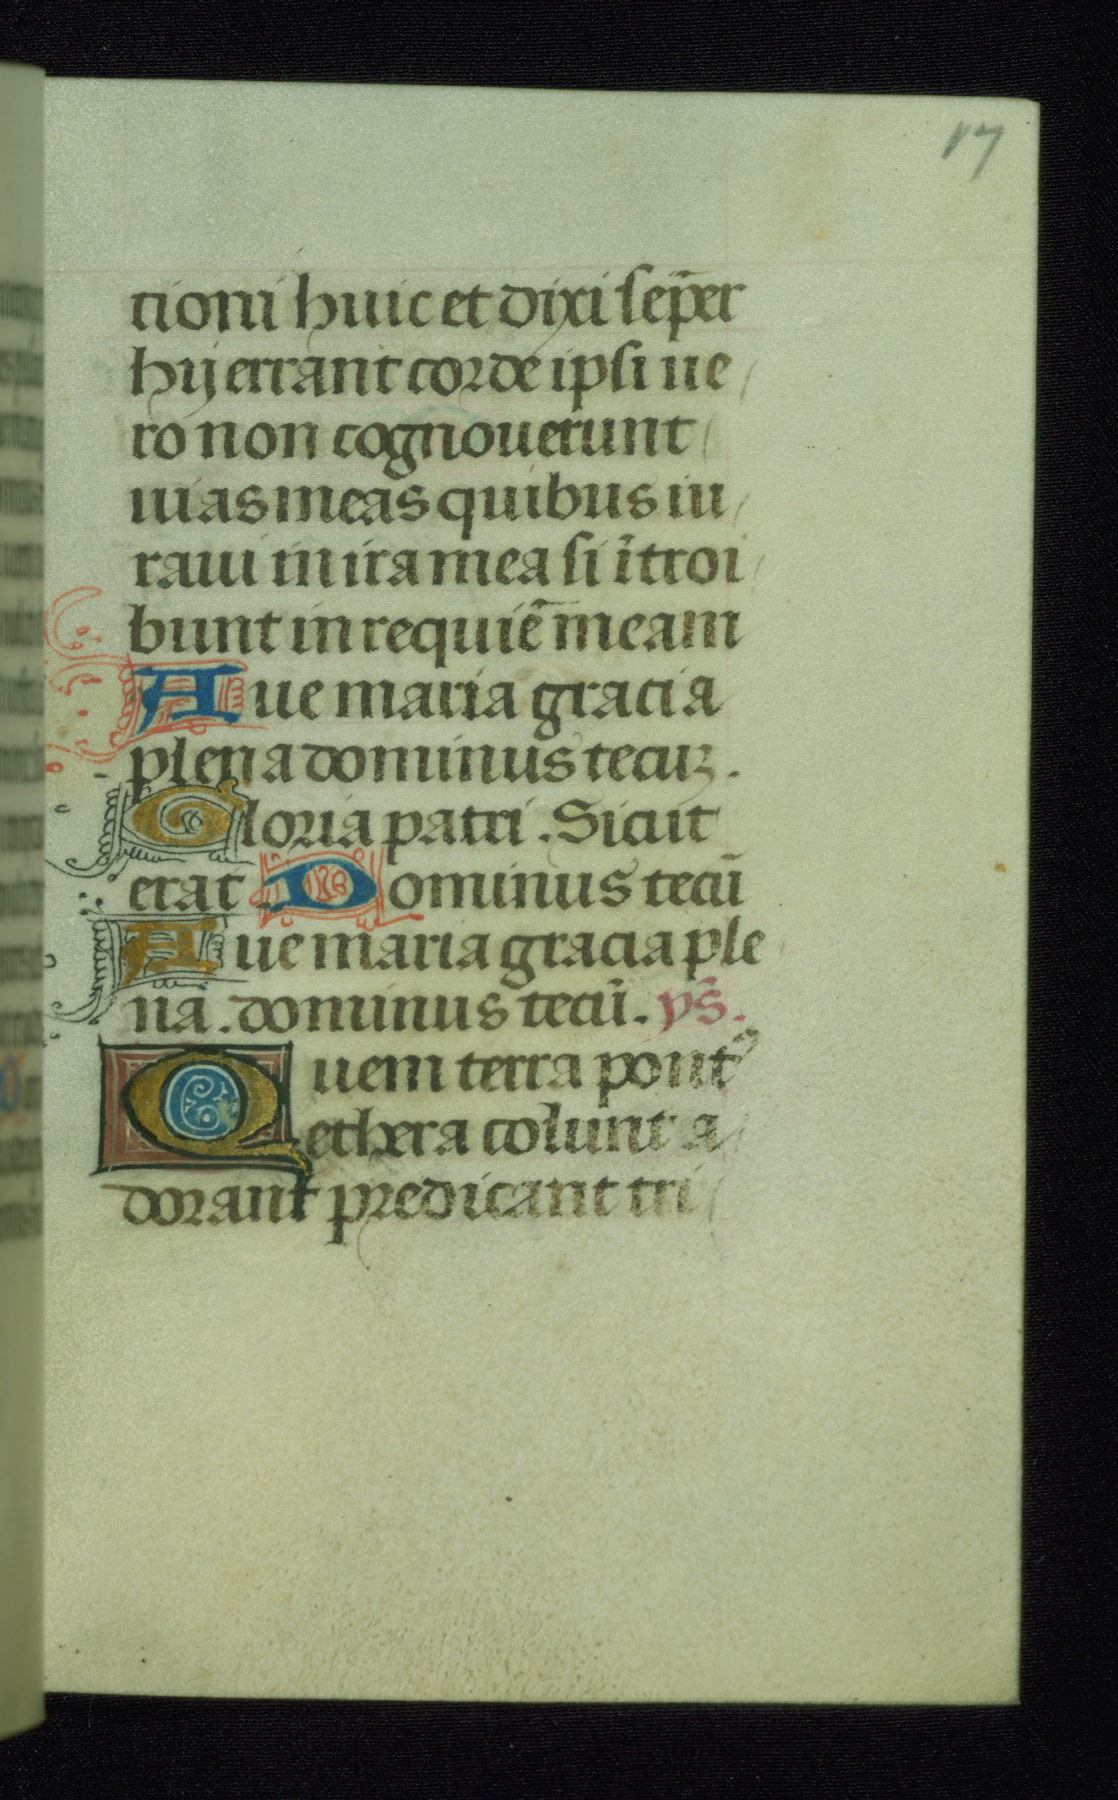 17
tioni huic et dixi sep̄er
hij errant corde ipsi ue
ro non cognouerunt
uias meas quibus iu
raui in ira mea si ītroi
bunt in requiē meam
Aue maria gracia
plena dominus tecuʒ.
Gloria patri. Sicut
erat Dominus tecū
Aue maria gracia ple
na. dominus tecū. ys̄.
Quem terra pontꝰ
ethera colunt a
dorant predicant tri